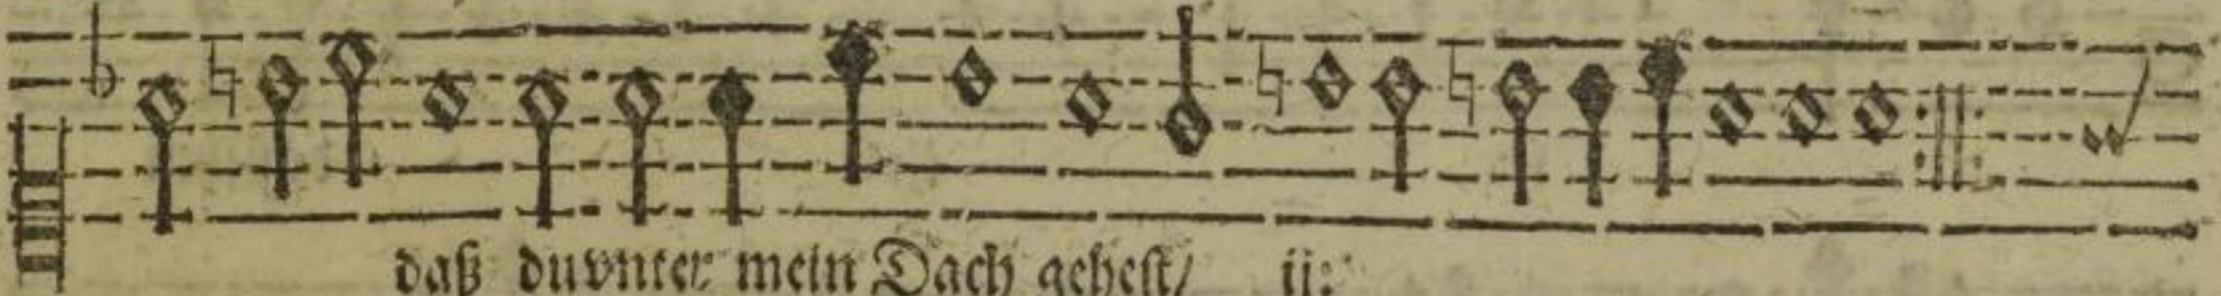 daß duvnter mein Dach gehest/ ij: